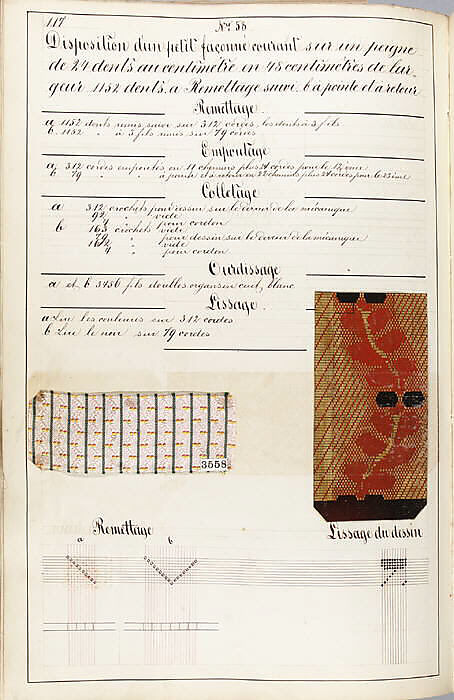 117
No. 58
Disposition d'un petit façonné courant sur un peigne
de 24 dents au centimètre en 48 centimètres de lar-
geur 1152 dents. a Remettage suivi. b a pointe et a retour
Remettage
a 1152 dents remis suivi sur 312 cordes, les dents à 3 fils
b. 1152 " à 3 fils remis sur 79 cordes
Empoutage
a. 312 cordes empoutés en 11 chemins plus 24 cordes pour le 12ème
b. 79 " à pointe et a retour en 22 chemins plus 24 cordes pour le 23ème
Colletage
a 312 crochets pour dessin sur le devant de la mécanique
92 " vide
4 " pour cordon
b 163 crochets vide
79 " pour dessin sur le derrière de la mécanique
162 " vide
4 " pour cordon
Ourdissage
a et b 3456 fils doubles organsin cuit, blanc
Lissage
a Lire les couleurs sur 312 cordes
b Lire le noir sur 79 cordes
3558
Remettage
a b
Lissage du dessin